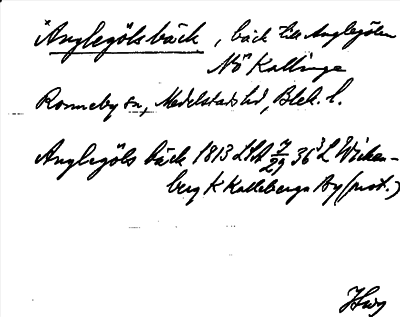 *Änglegölsbäck, bäck till Änglegölen
NÖ Kallinge
Ronneby sn, Medelstads hd, Blek. l.
Änglegöls bäck 1813 LSA 7/29 36³ L Wieken-
berg K Kalleberga By (prot.)